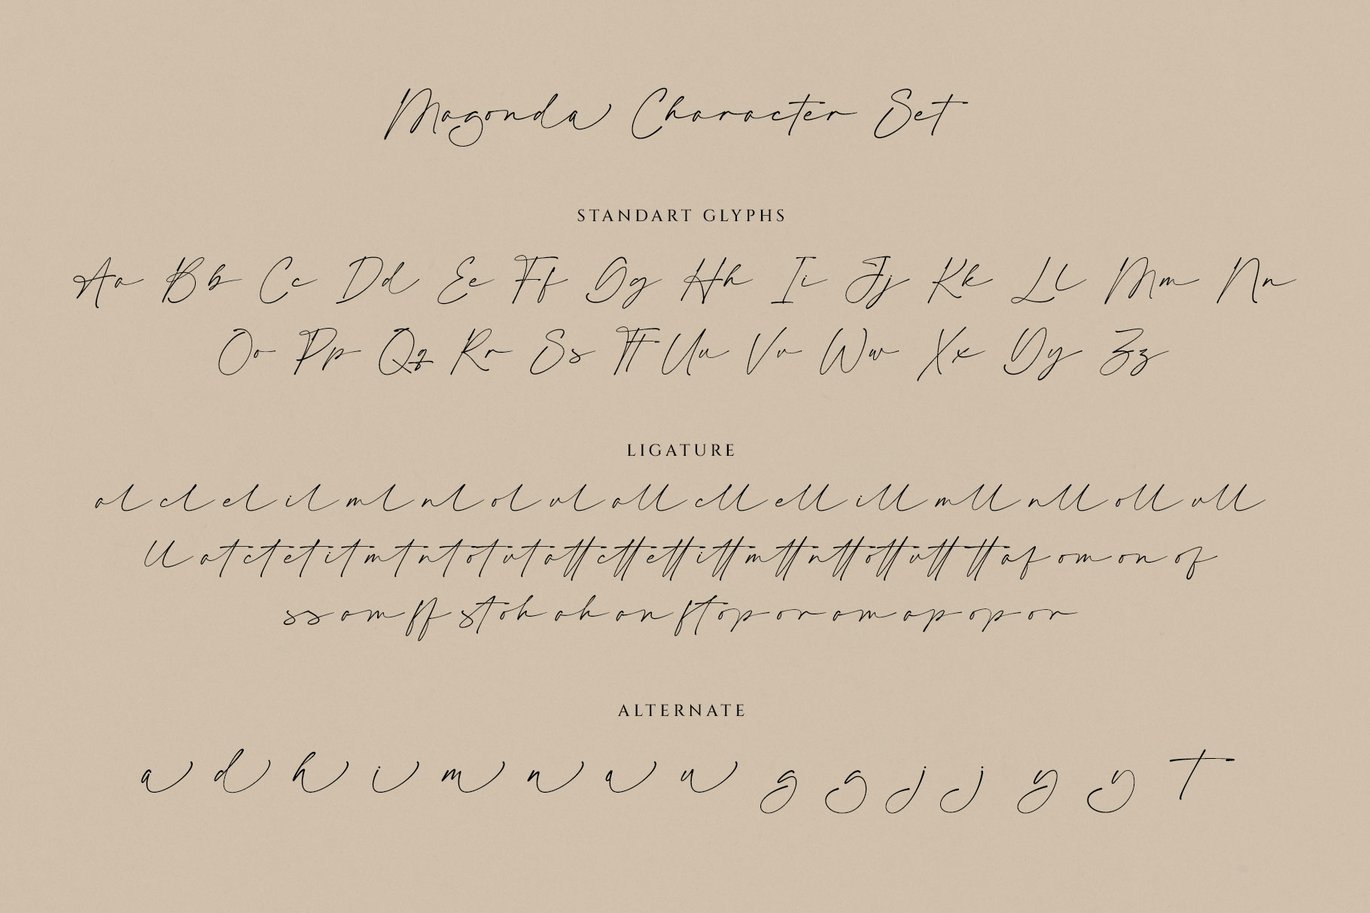 Magonda Character Set
STANDART GLYPHS
Aa Bb Cc Dd Ee Ff Gg Hh Ii Jj Kk Ll Mm Nn
Oo Pp Qq Rr Ss Tt Uu Vv Ww Xx Yy Zz
LIGATURE
al cl el il ml nl ol ul all cll ell ill mll nll oll ull
ll at ct et it mt nt ot ut att ctt ett itt mtt ntt ott utt tt af om on of
ss am ff st oh ah an ft op or am ap op or
ALTERNATE
a d h i m n u g g j j y y t